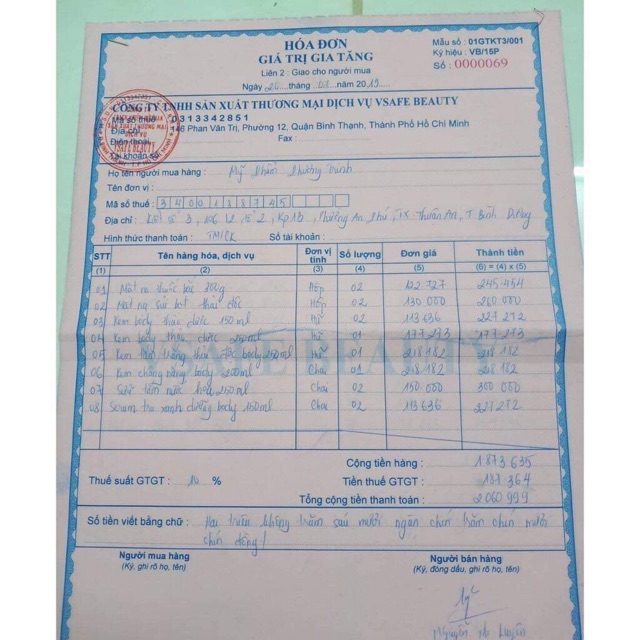 HÓA ĐƠN
GIÁ TRỊ GIA TĂNG
Liên 2 : Giao cho người mua
Ngày 26 tháng 07 năm 2019
Mẫu số : 01GTKT3/001
Ký hiệu : VB/15P
Số : 0000069
CÔNG TY TNHH SẢN XUẤT THƯƠNG MẠI DỊCH VỤ VSAFE BEAUTY
Mã số thuế 0313342851
Địa chỉ 146 Phan Văn Trị, Phường 12, Quận Bình Thạnh, Thành Phố Hồ Chí Minh
Điện thoại Fax :
Tài khoản số
VSAFE BEAUTY
Họ tên người mua hàng : Mỹ Phẩm Phương Trinh
Tên đơn vị :
Mã số thuế : 3400188745
Địa chỉ : Kp 13 Phường An Phú, TX Thuận An, T. Bình Dương
Hình thức thanh toán : TM/CK Số tài khoản :
STT Tên hàng hóa, dịch vụ Đơn vị tính Số lượng Đơn giá Thành tiền
(1) (2) (3) (4) (5) (6) = (4) x (5)
01 Mặt nạ thuốc bắc 300g Hộp 02 122.727 245.454
02 Mặt nạ sủi bọt thải độc Hộp 02 130 000 260 000
03 Kem body thảo dược 150ml Hũ 02 113 636 227 272
04 Kem body thảo dược 250ml Hũ 01 177 273 177 273
05 Kem tắm trắng thải độc body 250ml Hũ 01 218 182 218 182
06 Kem chống nắng body 200ml Chai 01 218 182 218 182
07 Sữa tắm nước hoa 250ml Chai 02 150 000 300 000
08 Serum trà xanh dưỡng body 150ml Chai 02 113 636 227 272
SAFE BEAUTY
Cộng tiền hàng : 1 873 635
Thuế suất GTGT : 10 % Tiền thuế GTGT : 187 364
Tổng cộng tiền thanh toán : 2 060 999
Số tiền viết bằng chữ : Hai triệu không trăm sáu mươi ngàn chín trăm chín mươi
chín đồng!
Người mua hàng
(Ký, ghi rõ họ, tên)
Người bán hàng
(Ký, đóng dấu, ghi rõ họ, tên)
Nguyễn Luyến